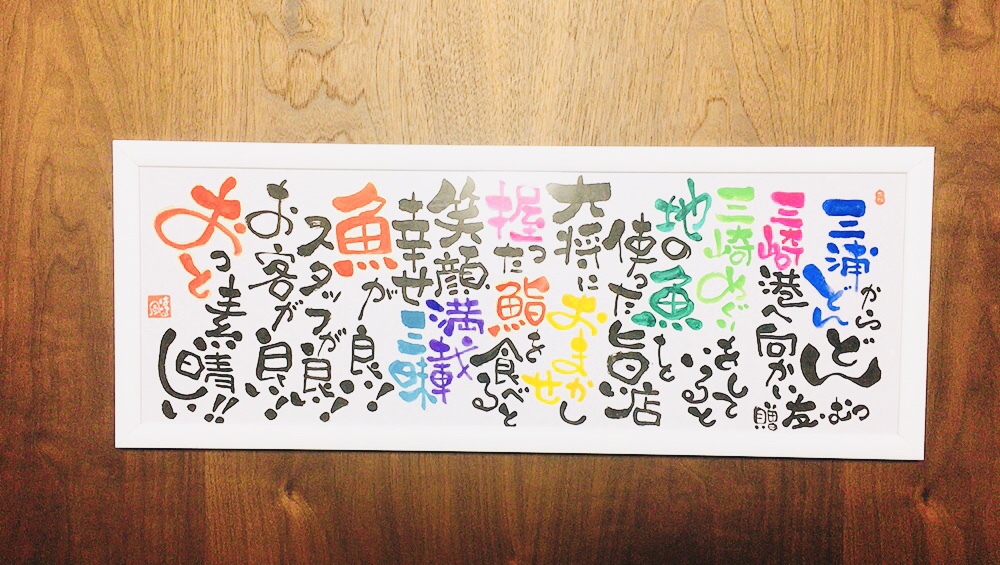 三浦からどんどん
三崎港へ向かい
三崎めぐりをして
いると
地の魚を
使った旨い店
大将におまかせし
握った鮨を食べると
笑顔満載
幸せ三昧
魚が良い!
スタッフが良い!
お客が良い!
おっと素晴しい!!
贈 友・むつ